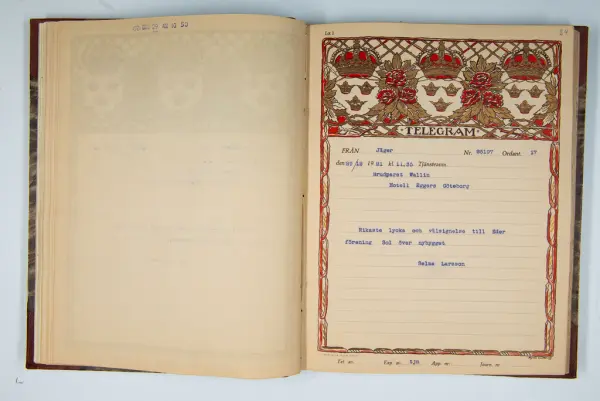 Lx 5
TELEGRAM
FRÅN Jäger Nr. 96197 Ordant. 17
den 29/12 1931 kl 11.55 Tjänsteanm.
Brudparet Wallin
Hotell Eggers Göteborg
Rikaste lycka och välsignelse till Eder
förening Sol över nybygget
Selma Larsson
Fst. nr. Exp. nr. App. nr. Journ. nr